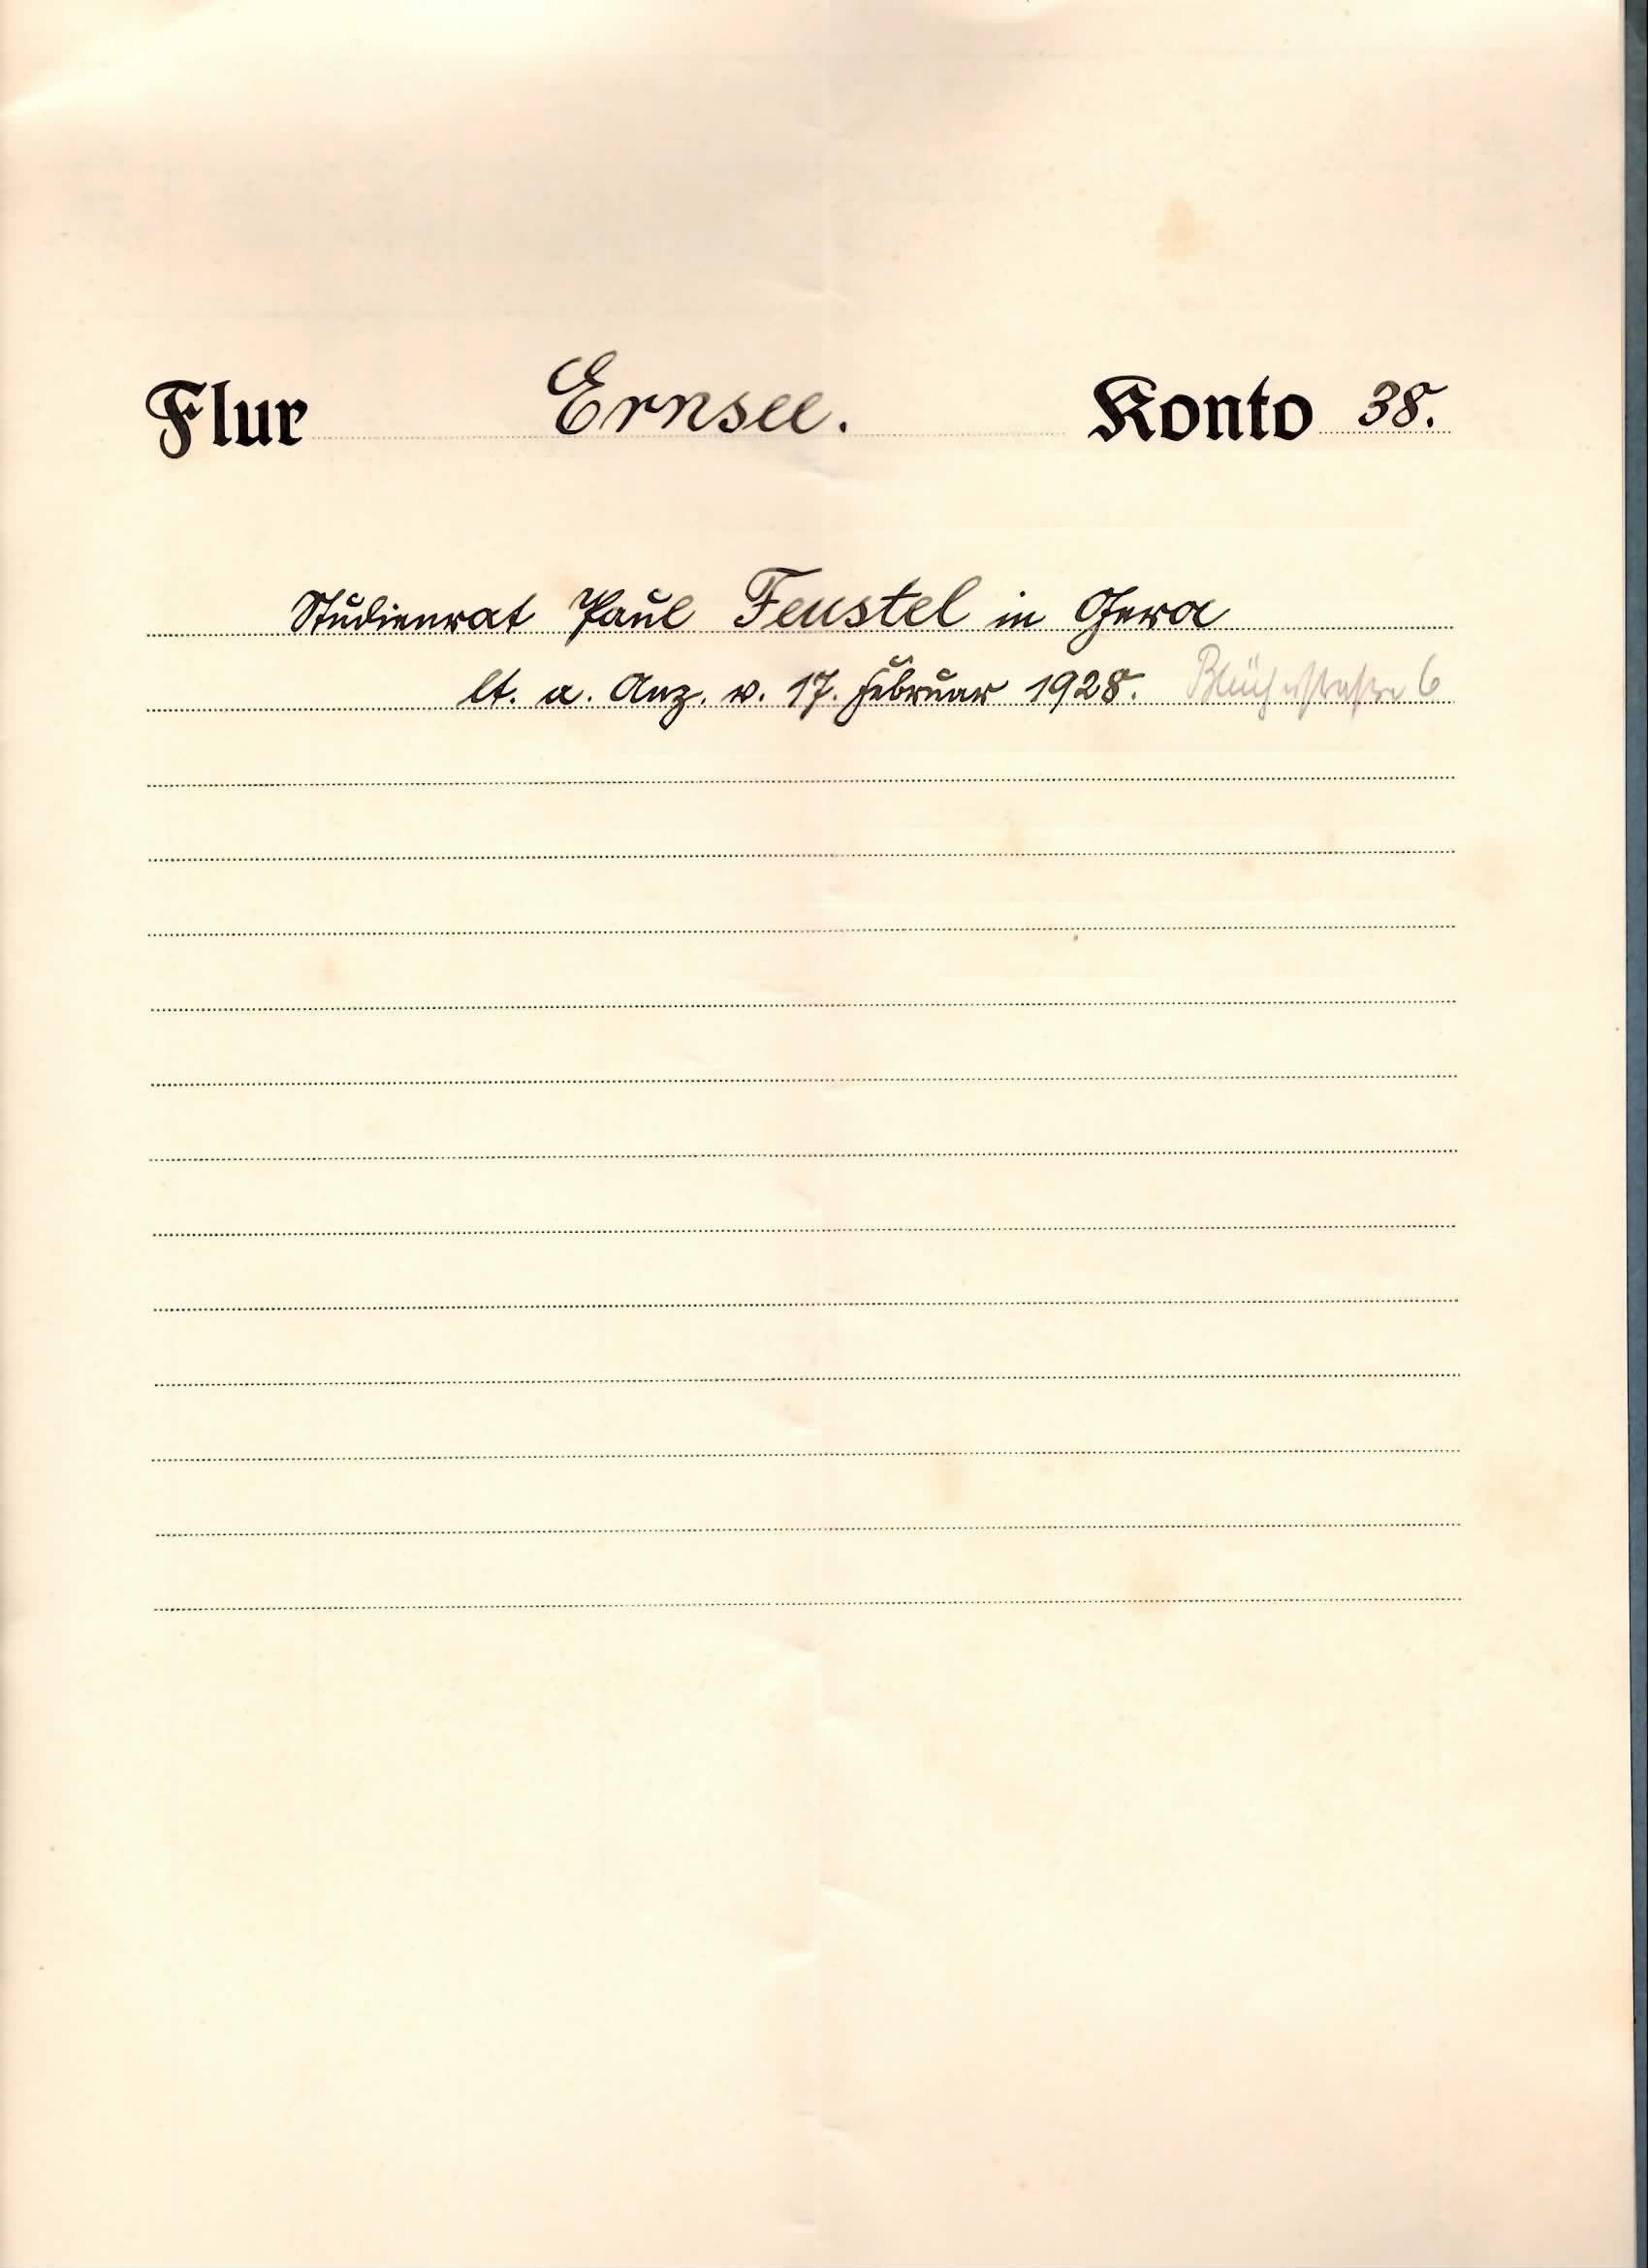 Flur Ernsee. Konto 38.
Studienrat Paul Feustel in Gera
lt. a. Anz. v. 17. Februar 1928. Blücherstraße 6